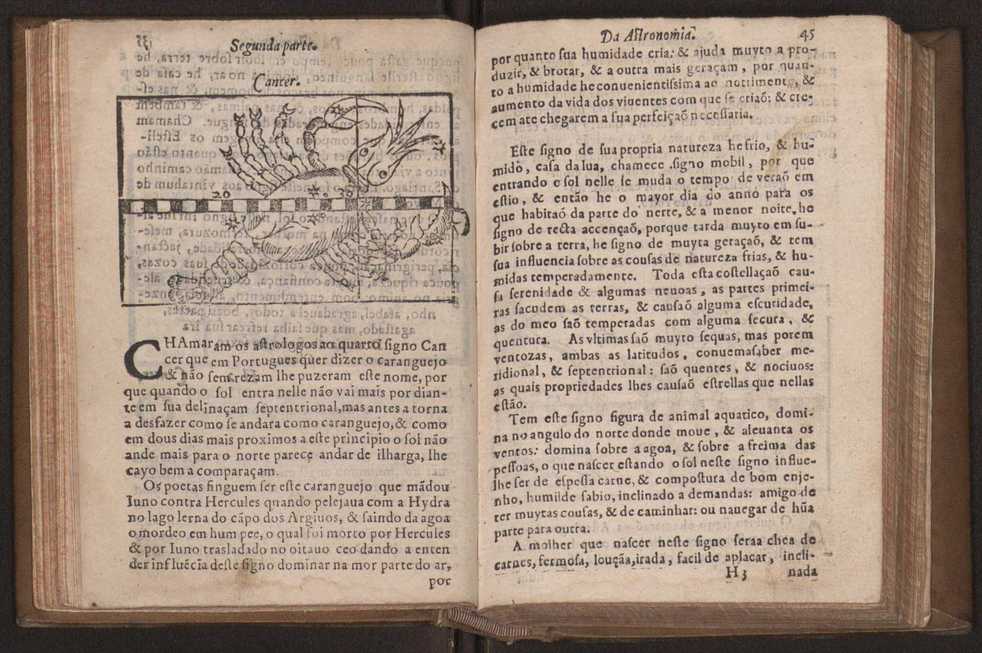 Segunda parte.
Cancer.
20
CHAmaram os astrologos ao quarto signo Can
cer que em Portugues quer dizer o caranguejo
& não sem rezam lhe puzeram este nome, por
que quando o sol entra nelle não vai mais por dian-
te em sua delinaçam septentrional, mas antes a torna
a desfazer como se andara como caranguejo, & como
em dous dias mais proximos a este principio o sol não
ande mais para o norte pareçe andar de ilharga, lhe
cayo bem a comparaçam.
Os poetas finguem ser este caranguejo que mãdou
Iuno contra Hercules quando pelejaua com a Hydra
no lago lerna do cãpo dos Argiuos, & saindo da agoa
o mordeo em hum pee, o qual foi morto por Hercules
& por Iuno trasladado no oitauo ceo dando a enten
der influẽcia deste signo dominar na mor parte do ar,
por
Da Astronomia. 45
por quanto sua humidade cria: & ajuda muyto a pro-
duzir, & brotar, & a outra mais geraçam, por quan-
to a humidade he conuenientissima ao notrimento, &
aumento da vida dos viuentes com que se criaõ: & cre-
cem ate chegarem a sua perfeiçaõ necessaria.
Este signo de sua propria natureza he frio, & hu-
mido, casa da lua, chamece signo mobil, por que
entrando o sol nelle se muda o tempo de veraõ em
estio, & então he o mayor dia do anno para os
que habitaõ da parte do norte, & a menor noite, he
signo de recta accençaõ, porque tarda muyto em su-
bir sobre a terra, he signo de muyta geraçaõ, & tem
sua influencia sobre as cousas de natureza frias, & hu-
midas temperadamente. Toda esta costellaçaõ cau-
sa serenidade & algumas neuoas, as partes primei-
ras sacudem as terras, & causaõ alguma escuridade,
as do meo saõ temperadas com alguma secura, &
quentura. As vltimas saõ muyto sequas, mas porem
ventozas, ambas as latitudos, conuemasaber me-
ridional, & septentrional: saõ quentes, & nociuos:
as quais propriedades lhes causaõ estrellas que nellas
estão.
Tem este signo figura de animal aquatico, domi-
na no angulo do norte donde moue, & aleuanta os
ventos: domina sobre a agoa, & sobre a freima das
pessoas, o que nascer estando o sol neste signo influe-
lhe ser de espessa carne, & compostura de bom enje-
nho, humilde sabio, inclinado a demandas: amigo de
ter muytas cousas, & de caminhar: ou nauegar de hũa
parte para outra.
A molher que nascer neste signo seraa chea de
carnes, fermosa, louçãa, irada, facil de aplacar, incli-
H3 nada